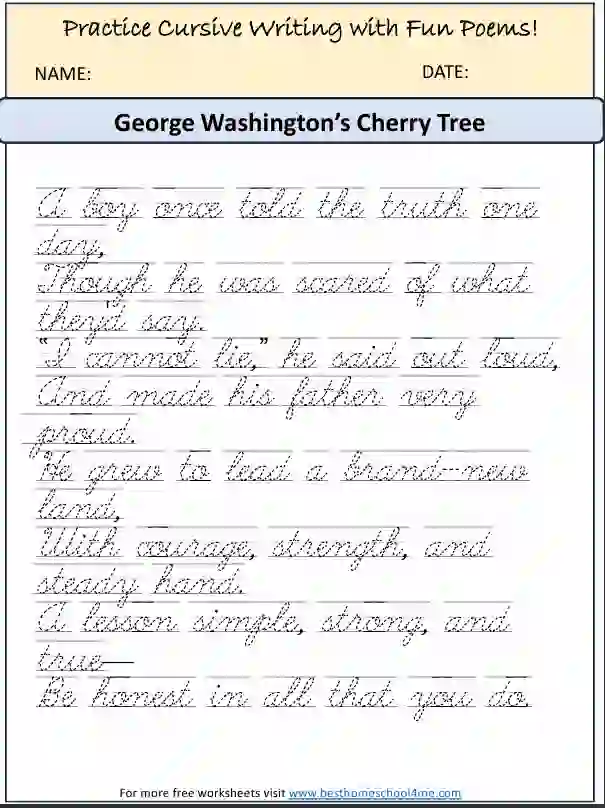 Practice Cursive Writing with Fun Poems!
NAME: DATE:
George Washington’s Cherry Tree
A boy once told the truth one
day,
Though he was scared of what
they'd say.
“I cannot lie,” he said out loud,
And made his father very
proud.
He grew to lead a brand-new
land,
With courage, strength, and
steady hand.
A lesson simple, strong, and
true—
Be honest in all that you do.
For more free worksheets visit www.besthomeschool4me.com